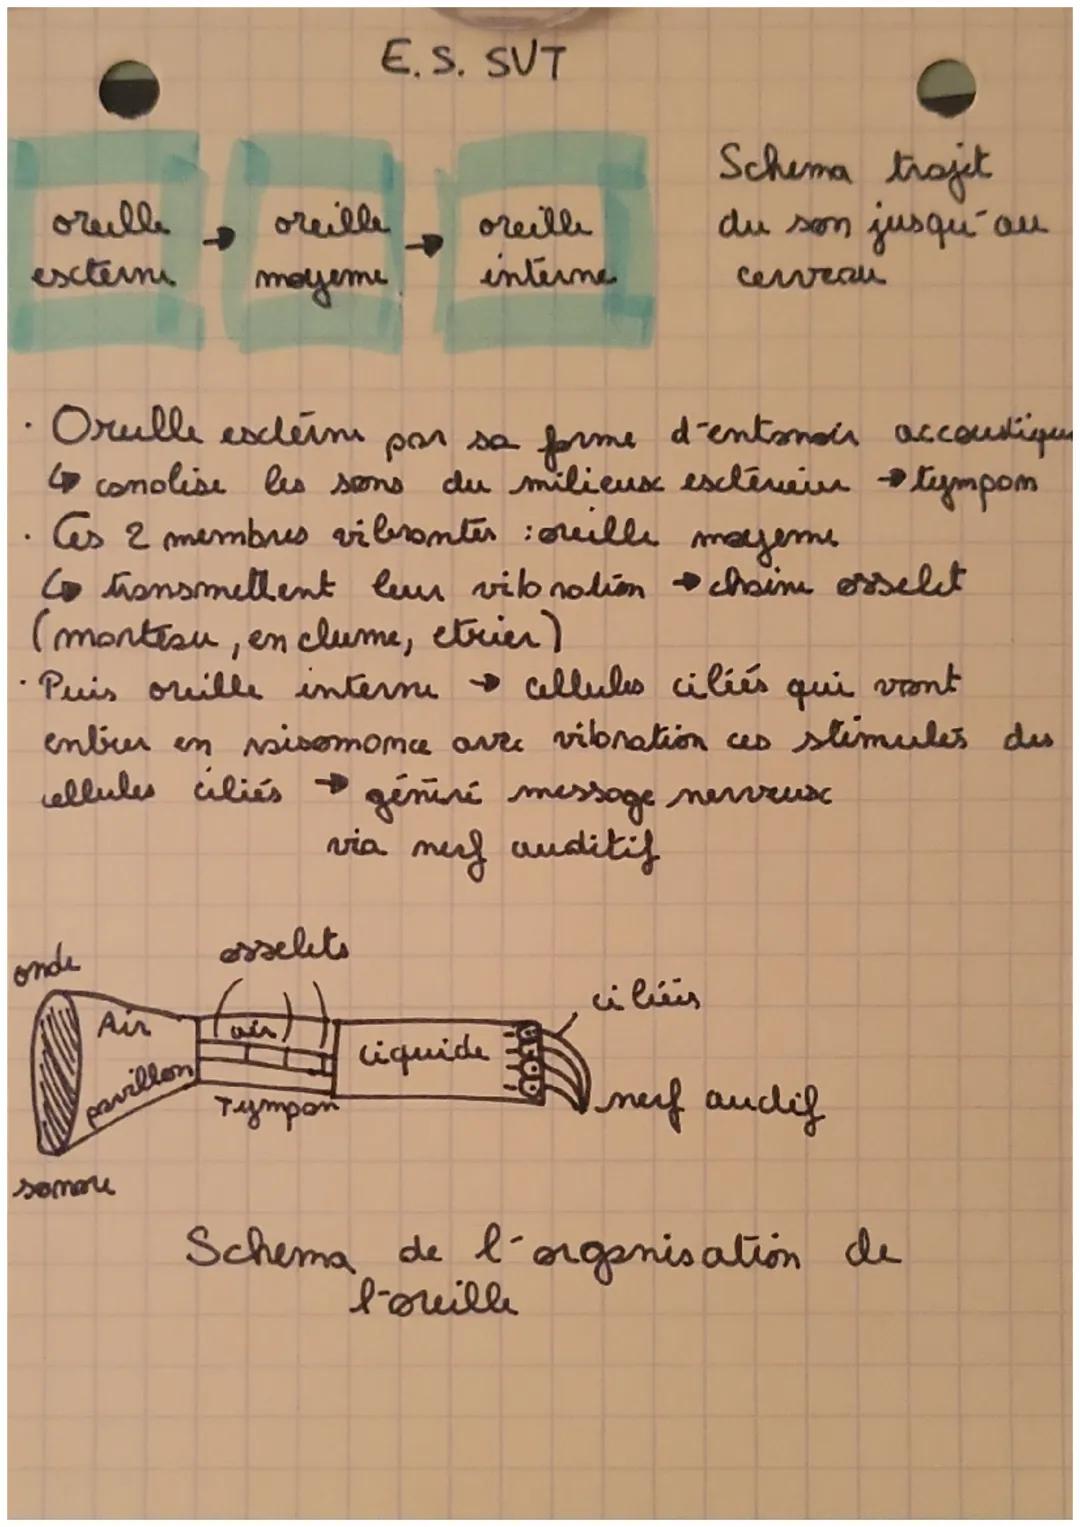 E.S. SVT
oreille
excterne
oreille
moyenne
oreille
interne
Schema trajet
du son jusqu'au
cerveau
· Oreille exctèrne par sa forme d'entonoir accoustique
↳ canalise les sons du milieux exctérieur → tympan
· Ces 2 membres vibrantes : oreille moyenne
↳ transmettent leur vibration → chaine osselet
(marteau, enclume, etrier)
· Puis oreille interne → cellules ciliés qui vont
entrer en raisonnance avec vibration ces stimulés des
cellules ciliés → généré message nerveux
via nerf auditif
onde
osselets
Air
(air)
liquide
ciliées
pavillon
Tympan
nerf audif
sonore
Schema de l'organisation de
l'oreille